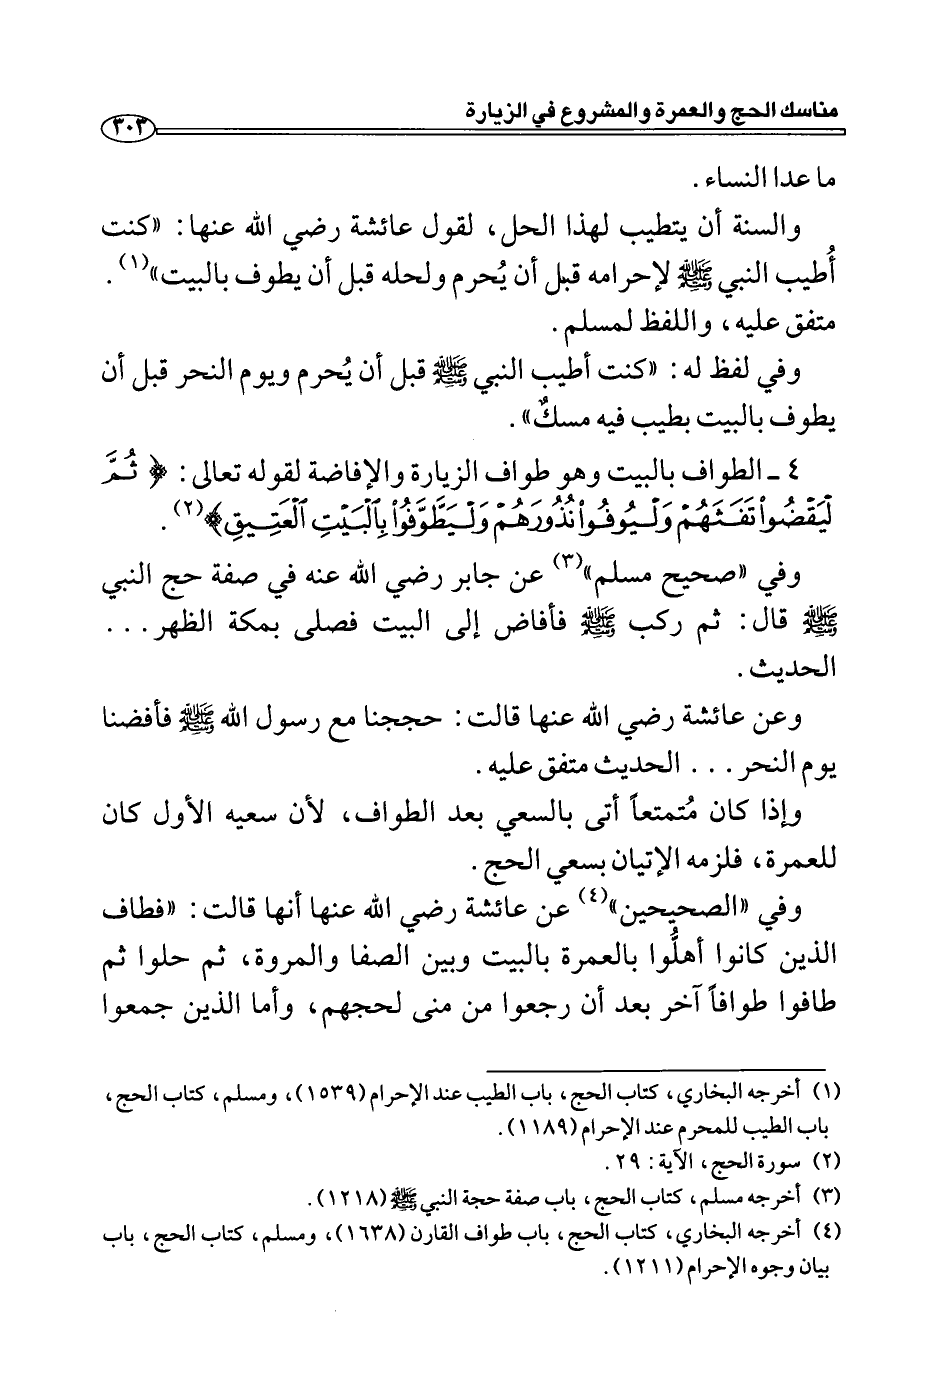 مناسك الحج والعمرة والمشروع في الزيارة
٣٠٣
ما عدا النساء .
والسنة أن يتطيب لهذا الحل، لقول عائشة رضي الله عنها: «كنت
أُطيب النبي ﷺ لإحرامه قبل أن يُحرم ولحله قبل أن يطوف بالبيت»(١) .
متفق عليه، واللفظ لمسلم.
وفي لفظ له: «كنت أطيب النبي ﷺ قبل أن يُحرم ويوم النحر قبل أن
يطوف بالبيت بطيب فيه مسكٌ».
٤ ـ الطواف بالبيت وهو طواف الزيارة والإفاضة لقوله تعالى: ﴿ ثُمَّ
لْيَقْضُوا۟ تَفَثَهُمْ وَلْيُوفُوا۟ نُذُورَهُمْ وَلْيَطَّوَّفُوا۟ بِٱلْبَيْتِ ٱلْعَتِيقِ﴾(٢) .
وفي «صحيح مسلم»(٣) عن جابر رضي الله عنه في صفة حج النبي
ﷺ قال: ثم ركب ﷺ فأفاض إلى البيت فصلى بمكة الظهر . . .
الحديث .
وعن عائشة رضي الله عنها قالت: حججنا مع رسول الله ﷺ فأفضنا
يوم النحر . . . الحديث متفق عليه .
وإذا كان مُتمتعاً أتى بالسعي بعد الطواف، لأن سعيه الأول كان
للعمرة، فلزمه الإتيان بسعي الحج .
وفي «الصحيحين»(٤) عن عائشة رضي الله عنها أنها قالت: «فطاف
الذين كانوا أهلُّوا بالعمرة بالبيت وبين الصفا والمروة، ثم حلوا ثم
طافوا طوافاً آخر بعد أن رجعوا من منى لحجهم، وأما الذين جمعوا
(١) أخرجه البخاري، كتاب الحج، باب الطيب عند الإحرام (١٥٣٩)، ومسلم، كتاب الحج،
باب الطيب للمحرم عند الإحرام (١١٨٩).
(٢) سورة الحج، الآية: ٢٩ .
(٣) أخرجه مسلم، كتاب الحج، باب صفة حجة النبي ﷺ (١٢١٨).
(٤) أخرجه البخاري، كتاب الحج، باب طواف القارن (١٦٣٨)، ومسلم، كتاب الحج، باب
بيان وجوه الإحرام (١٢١١).